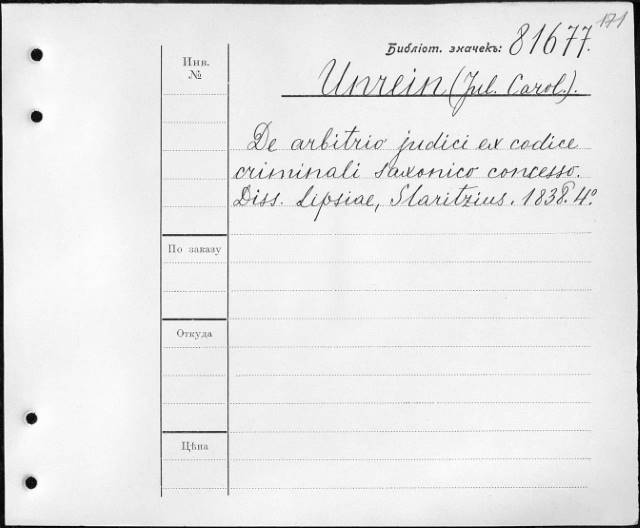 171
Библіот. значекъ: 81677.
Инв.
№
Unrein (Jul. Carol.).
De arbitrio judici ex codice
criminali saxonico concesso.
Diss. Lipsiae, Staritzius. 1838. 4º.
По заказу
Откуда
Цѣна